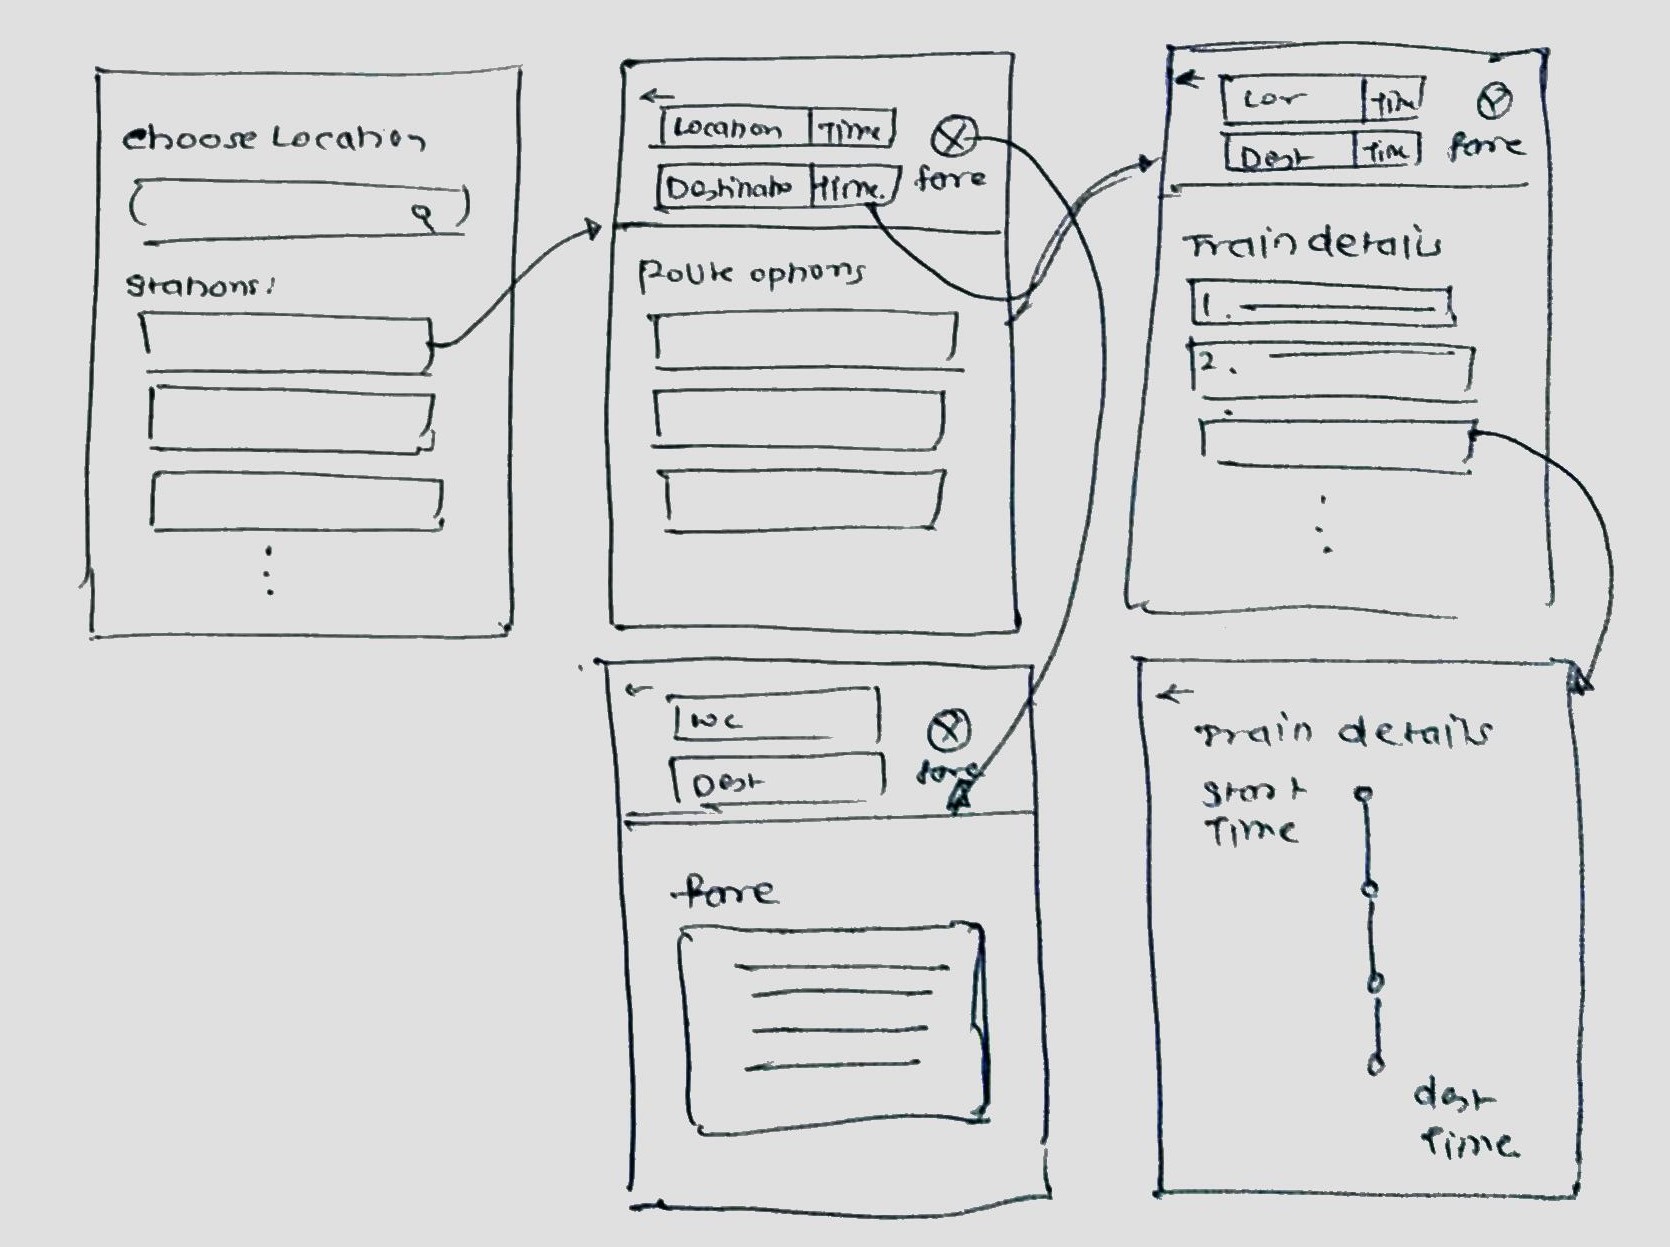 Choose Location
Stations:
←
Location Time
Destinato Time.
fare
Route options
←
Lor Tim
Dest Tim
fare
Train details
1.
2.
←
Dest
fare
fare
←
Train details
Start
Time
dest
Time